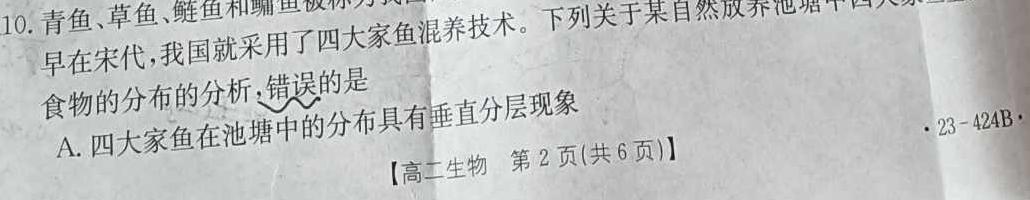 10. 青鱼、草鱼、鲢鱼和鳙鱼被称为我
早在宋代,我国就采用了四大家鱼混养技术。下列关于某自然放养池塘中四大家
食物的分布的分析,错误的是
A. 四大家鱼在池塘中的分布具有垂直分层现象
【高二生物 第 2 页(共 6 页)】
·23-424B·